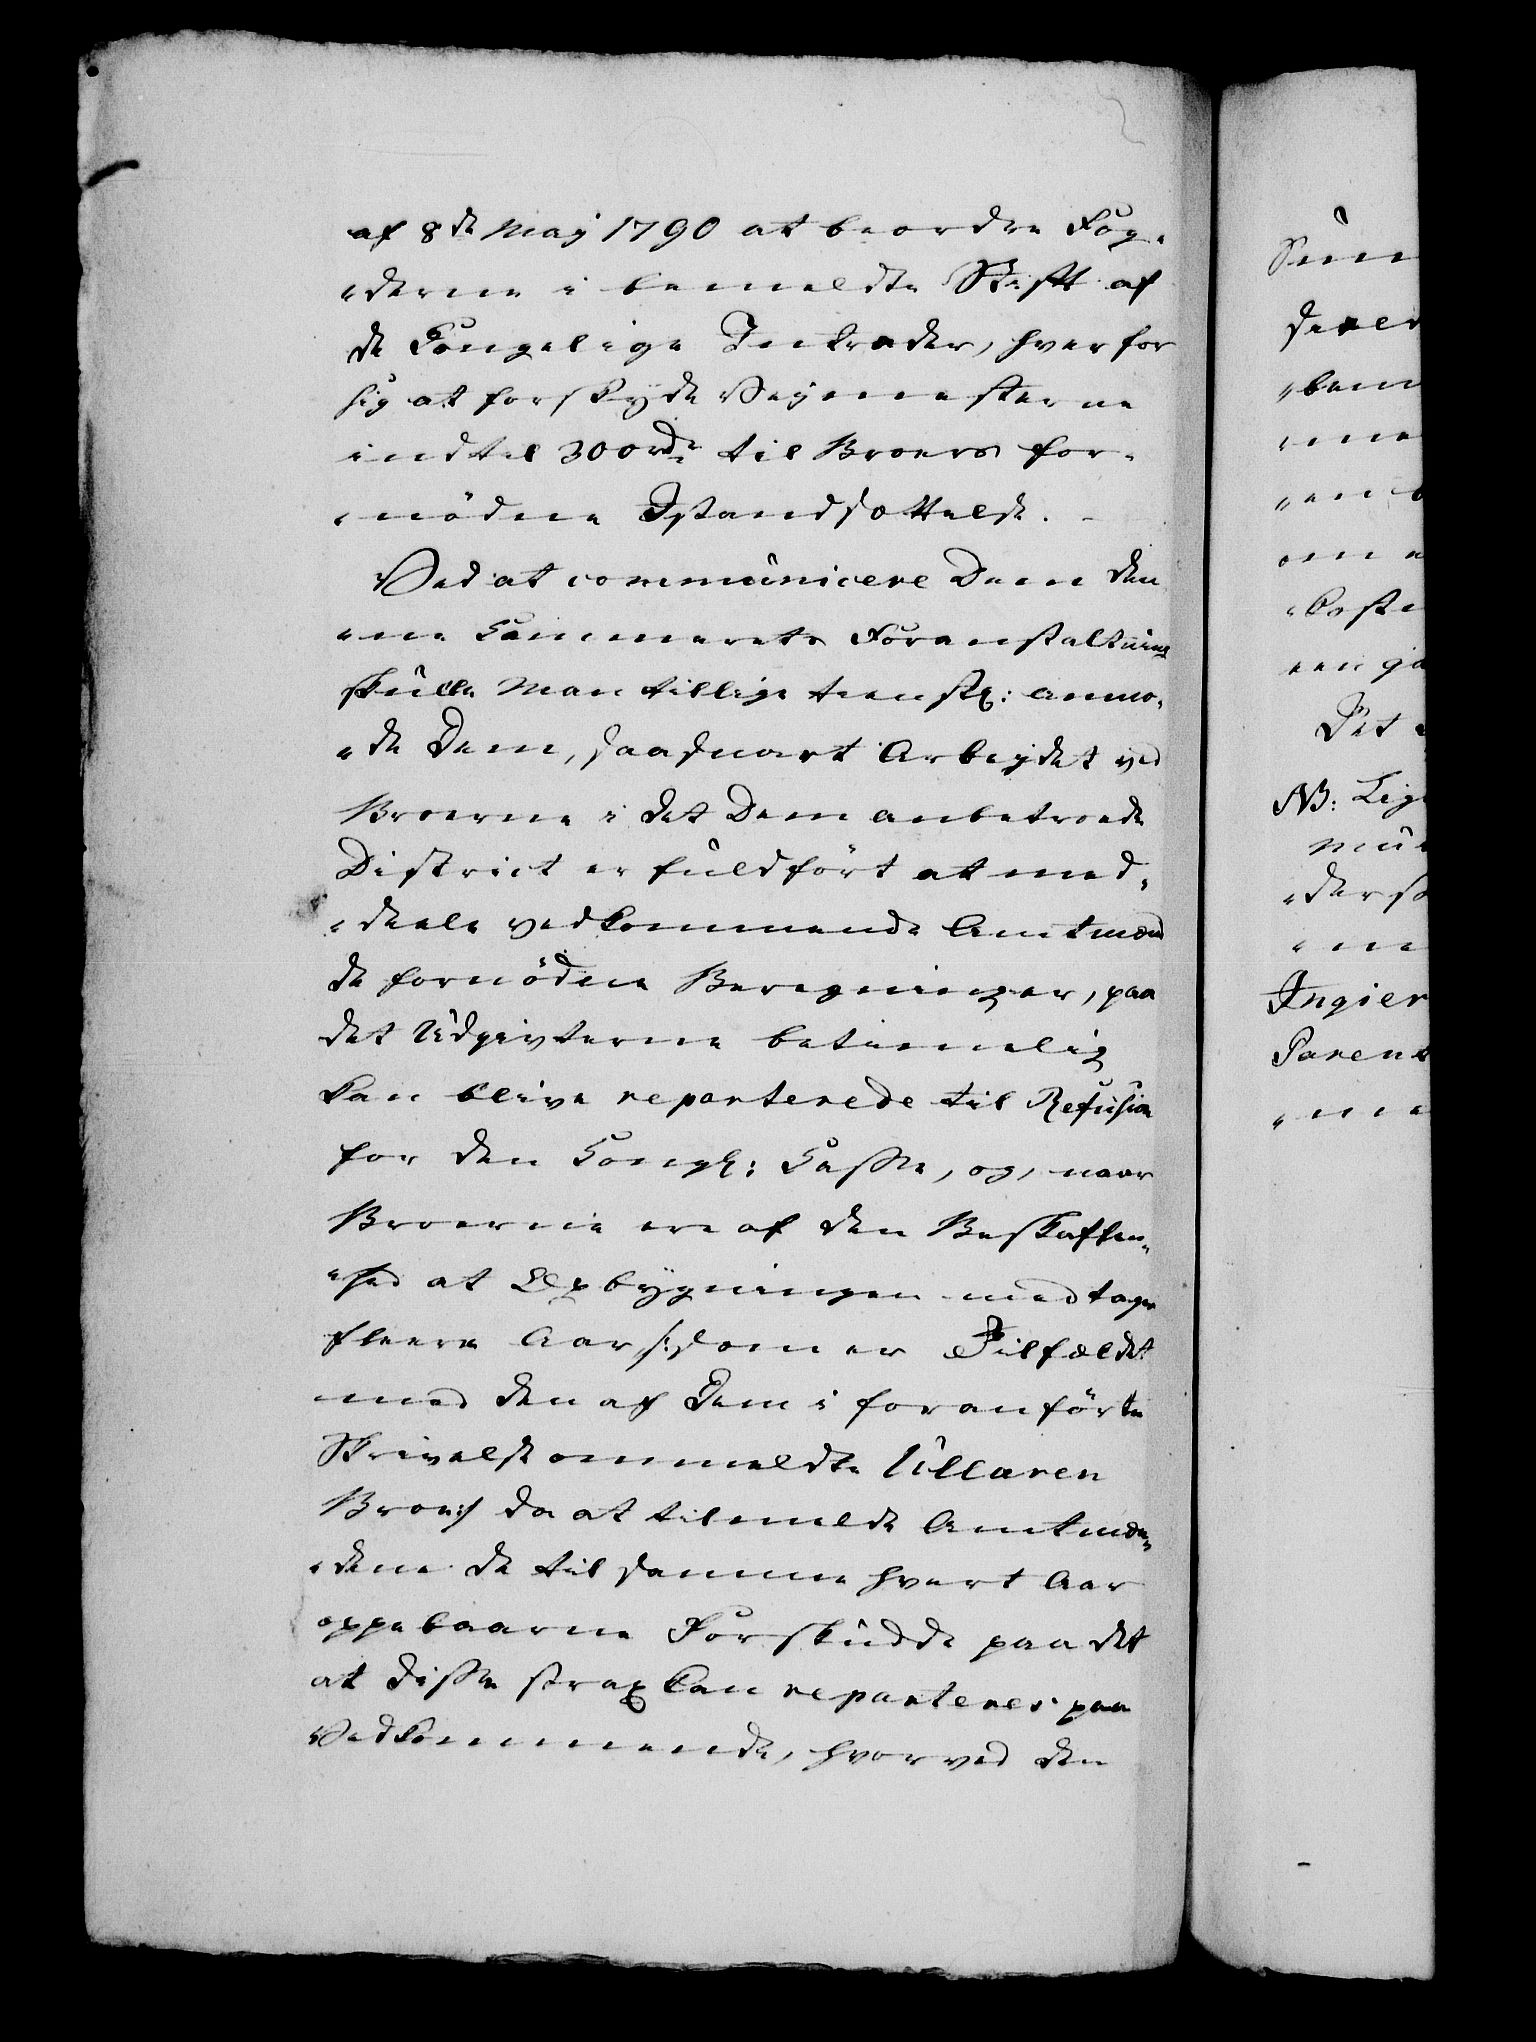 af 8de May 1790 at beordre Fog„
„derne i bemeldte Stift af
de Kongelige Intrader, hver for
sig at forskyde Veymesterne
indtil 300 rdr til Broers for„
„nödne Istandsættelse. –
Ved at communicere Dem den„
„ne Cammerets Foranstaltning
skulle Man tillige tienstl: anmo„
„de Dem, saasnart Arbeydet ved
Broerne i det Dem anbetroede
District er fuldfört at med„
„deele vedkommende Amtmænd
de fornödne Beregninger, paa
det Udgivterne betimelig
kan blive reparterede til Refusion
for den Kongl: Casse, og, naar
Broerne ere af den Beskaffen„
„hed at Opbygningen medtager
fleere Aar /: som er Tilfældet
med den af Dem i foranförte
Skrivelse ommeldte Ullaren
Broe :/ da at tilmelde Amtmæn„
„dene de til samme hvert Aar
oppebaarne Forskudde paa det
at disse strax kan reparteres paa
Vedkommende, hvorved den
Sum
deele
„bem
„me
„en
om
„koste
een ga
Det
NB: Lige
Mu
„ders
„ne
Ingier
Parent
„me